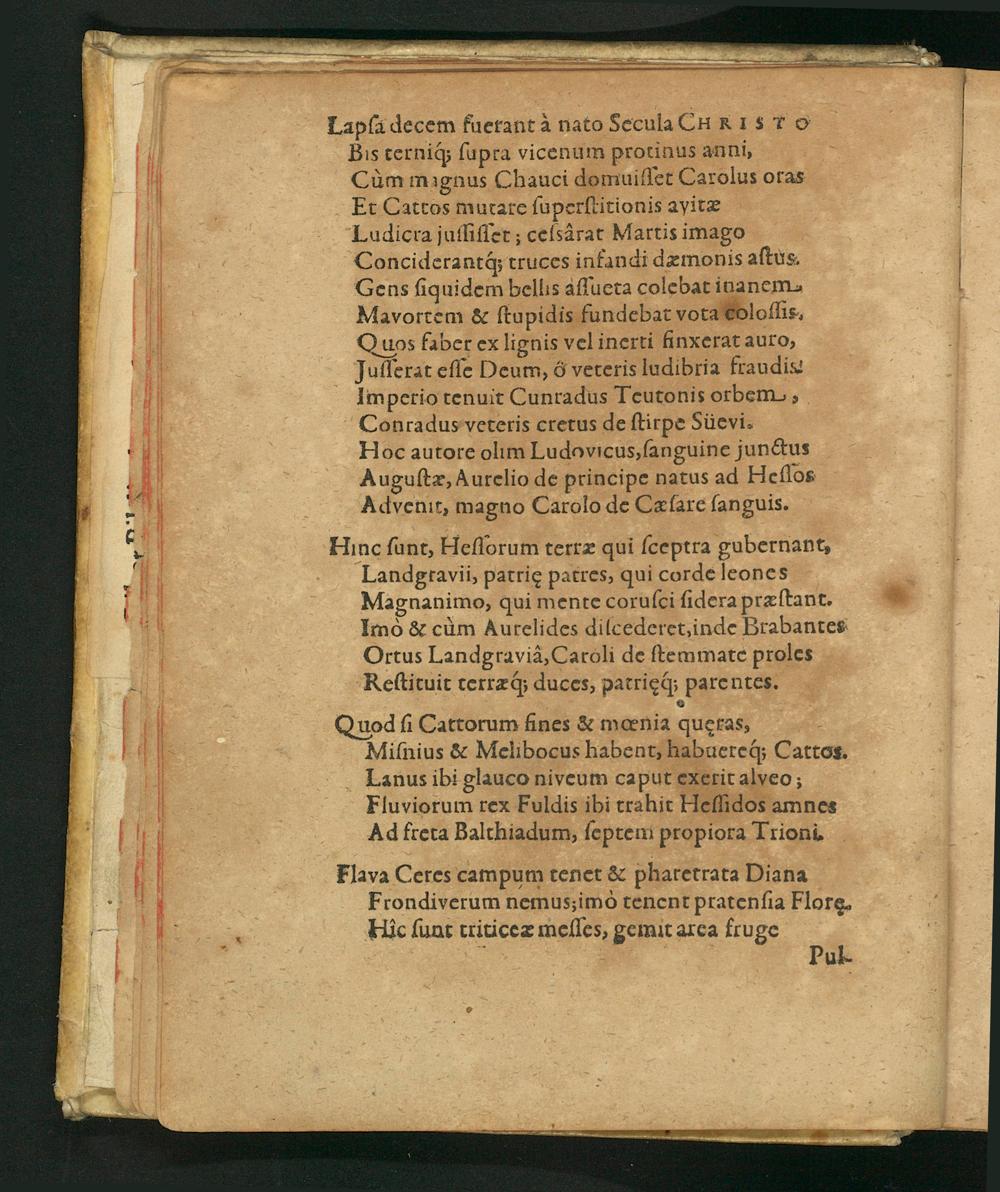 Lapſa decem fuerant à nato Secula CHRISTO
Bis terniq́; ſupra vicenum protinus anni,
Cùm magnus Chauci domuiſſet Carolus oras
Et Cattos mutare ſuperſtitionis avitæ
Ludicra juſſiſſet; ceſsârat Martis imago
Conciderantq́; truces infandi dæmonis aſtus.
Gens ſiquidem bellis aſſueta colebat inanem
Mavortem & ſtupidis fundebat vota coloſſis,
Quos faber ex lignis vel inerti finxerat auro,
Juſſerat eſſe Deum, ô veteris ludibria fraudis!
Imperio tenuit Cunradus Teutonis orbem,
Conradus veteris cretus de ſtirpe Süevi.
Hoc autore olim Ludovicus, ſanguine junctus
Auguſtæ, Aurelio de principe natus ad Heſſos
Advenit, magno Carolo de Cæſare ſanguis.
Hinc ſunt, Heſſorum terræ qui ſceptra gubernant,
Landgravii, patrię patres, qui corde leones
Magnanimo, qui mente coruſci ſidera præſtant.
Imò & cùm Aurelides diſcederet, inde Brabantes
Ortus Landgraviâ, Caroli de ſtemmate proles
Reſtituit terræq́; duces, patrięq́; parentes.
Quod ſi Cattorum fines & mœnia quęras,
Miſnius & Melibocus habent, habuereq́; Cattos.
Lanus ibi glauco niveum caput exerit alveo;
Fluviorum rex Fuldis ibi trahit Heſſidos amnes
Ad freta Balthiadum, ſeptem propiora Trioni.
Flava Ceres campum tenet & pharetrata Diana
Frondiverum nemus; imò tenent pratenſia Florę.
Hîc ſunt triticeæ meſſes, gemit area fruge
Pul-